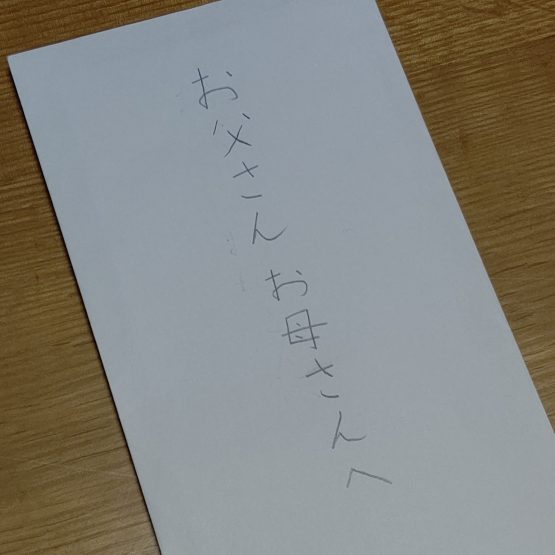 お父さんお母さんへ